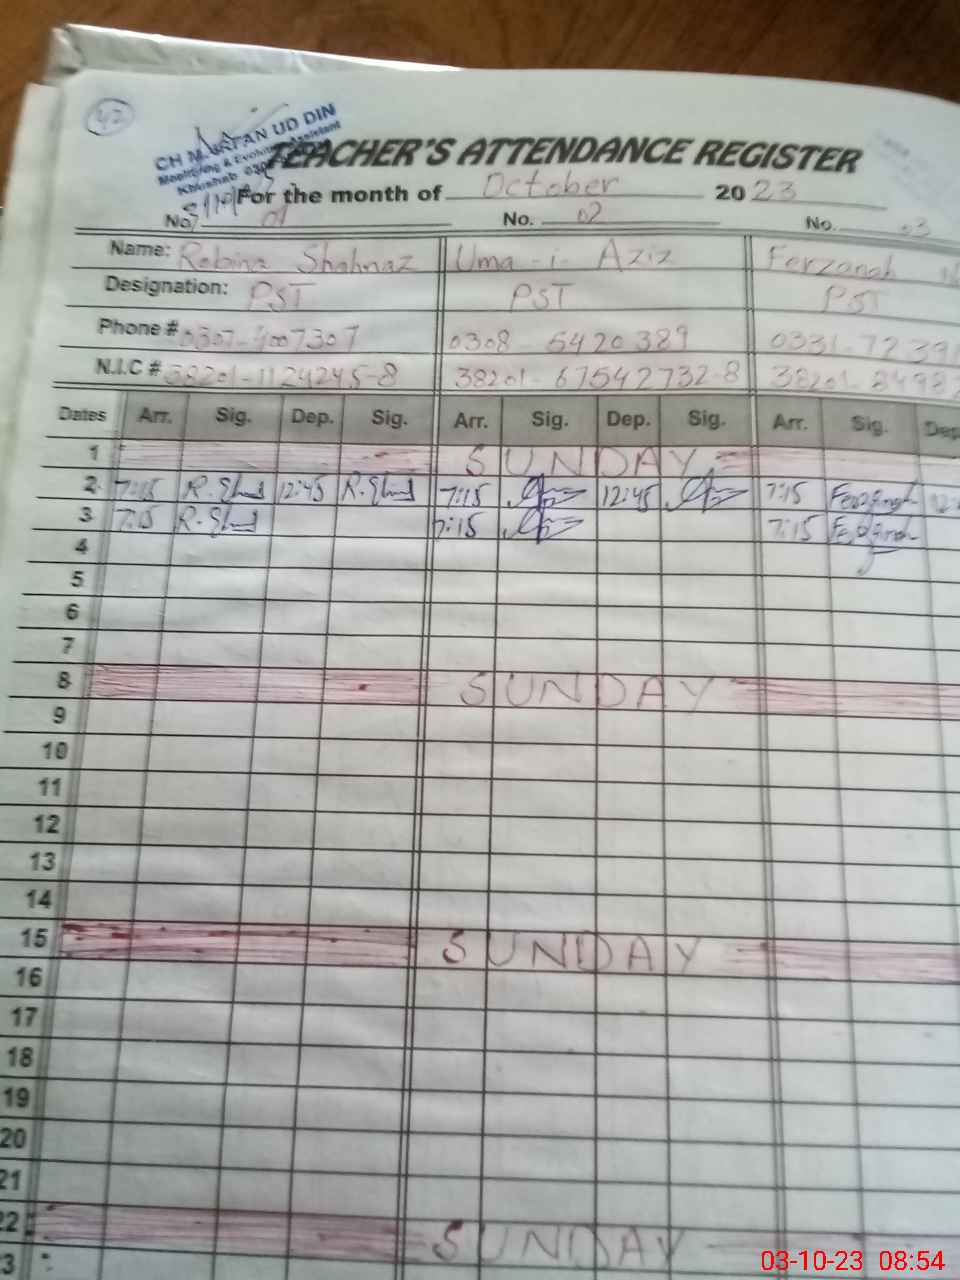 42
CH M. IRFAN UD DIN
Monitoring & Evolution Assistant
Khushab
TEACHER'S ATTENDANCE REGISTER
For the month of October 2023
No. 01 No. 02 No. 03
Name: Robina Shahnaz Uma-i-Aziz Ferzanah
Designation: PST PST PST
Phone # 0307-4007307 0308-5420389 0331-7239
N.I.C # 38201-1124245-8 38201-67542732-8 38201-8498
Dates Arr. Sig. Dep. Sig. Arr. Sig. Dep. Sig. Arr. Sig. Dep
1 SUNDAY
2 7:15 12:45 7:15 12:45 7:15 Ferzanah
3 7:15 7:15 7:15 Ferzanah
4
5
6
7
8 SUNDAY
9
10
11
12
13
14
15 SUNDAY
16
17
18
19
20
21
22 SUNDAY
3
03-10-23 08:54